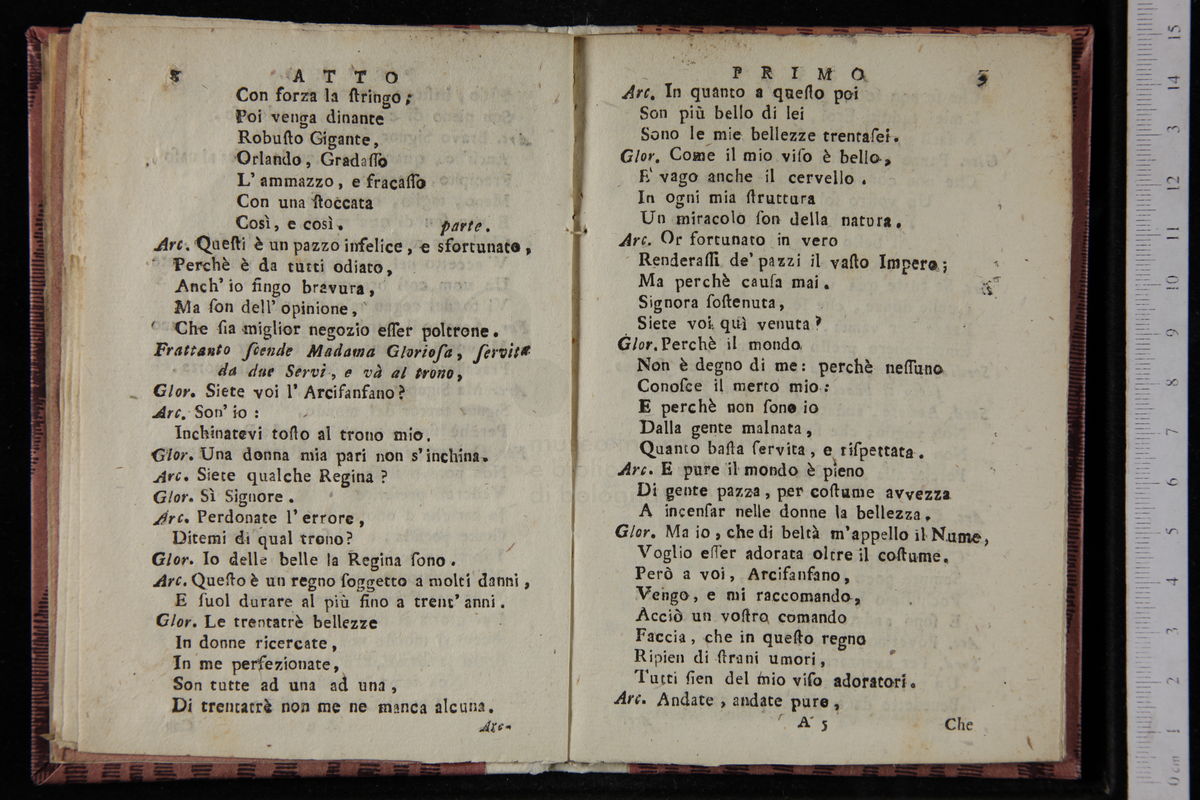 8 ATTO
Con forza la ſtringo;
Poi venga dinante
Robuſto Gigante,
Orlando, Gradaſſo
L' ammazzo, e fracaſſo
Con una ſtoccata
Così, e così. parte.
Arc. Queſti è un pazzo infelice, e sfortunato,
Perchè è da tutti odiato,
Anch' io fingo bravura,
Ma ſon dell' opinione,
Che ſia miglior negozio eſſer poltrone.
Frattanto ſcende Madama Glorioſa, ſervita
da due Servi, e và al trono,
Glor. Siete voi l' Arcifanfano?
Arc. Son' io:
Inchinatevi toſto al trono mio.
Glor. Una donna mia pari non s' inchina.
Arc. Siete qualche Regina?
Glor. Sì Signore.
Arc. Perdonate l' errore,
Ditemi di qual trono?
Glor. Io delle belle la Regina ſono.
Arc. Queſto è un regno ſoggetto a molti danni,
E ſuol durare al più fino a trent' anni.
Glor. Le trentatrè bellezze
In donne ricercate,
In me perfezionate,
Son tutte ad una ad una,
Di trentatrè non me ne manca alcuna.
Arc.
PRIMO
Arc. In quanto a queſto poi
Son più bello di lei
Sono le mie bellezze trentaſei.
Glor. Come il mio viſo è bello,
E' vago anche il cervello.
In ogni mia ſtruttura
Un miracolo ſon della natura.
Arc. Or fortunato in vero
Renderaſſi de' pazzi il vaſto Impero;
Ma perchè cauſa mai.
Signora ſoſtenuta,
Siete voi quì venuta?
Glor. Perchè il mondo
Non è degno di me: perchè neſſuno
Conoſce il merto mio:
E perchè non ſono io
Dalla gente malnata,
Quanto baſta ſervita, e riſpettata.
Arc. E pure il mondo è pieno
Di gente pazza, per coſtume avvezza
A incenſar nelle donne la bellezza.
Glor. Ma io, che di beltà m'appello il Nume,
Voglio eſſer adorata oltre il coſtume.
Però a voi, Arcifanfano,
Vengo, e mi raccomando,
Acciò un voſtro comando
Faccia, che in queſto regno
Ripien di ſtrani umori,
Tutti ſien del mio viſo adoratori.
Arc. Andate, andate pure,
A 5 Che